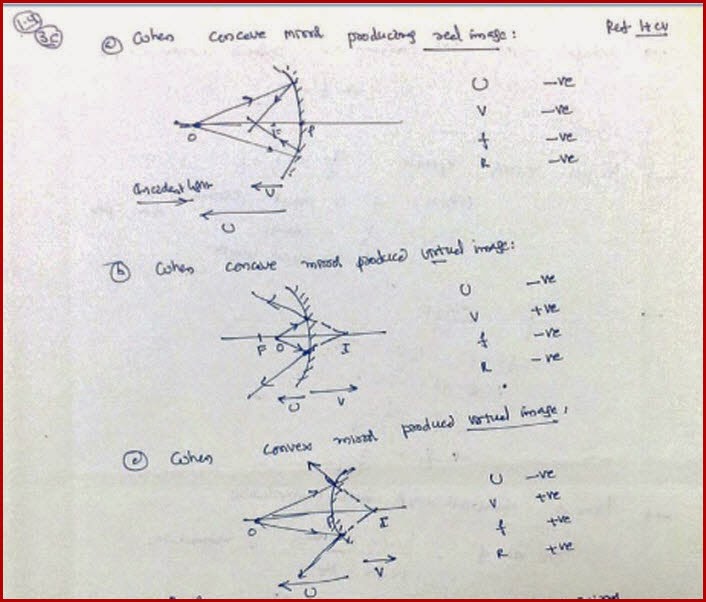 1.4
35
Ref HCV
(a) When concave mirror producing real image:
U -ve
V -ve
f -ve
R -ve
O F P
Incident light
V
U
(b) When concave mirror produced virtual image:
U -ve
V +ve
f -ve
R -ve
F O I
U V
(c) When convex mirror produced virtual image,
U -ve
V +ve
f +ve
R +ve
O P I
V
U